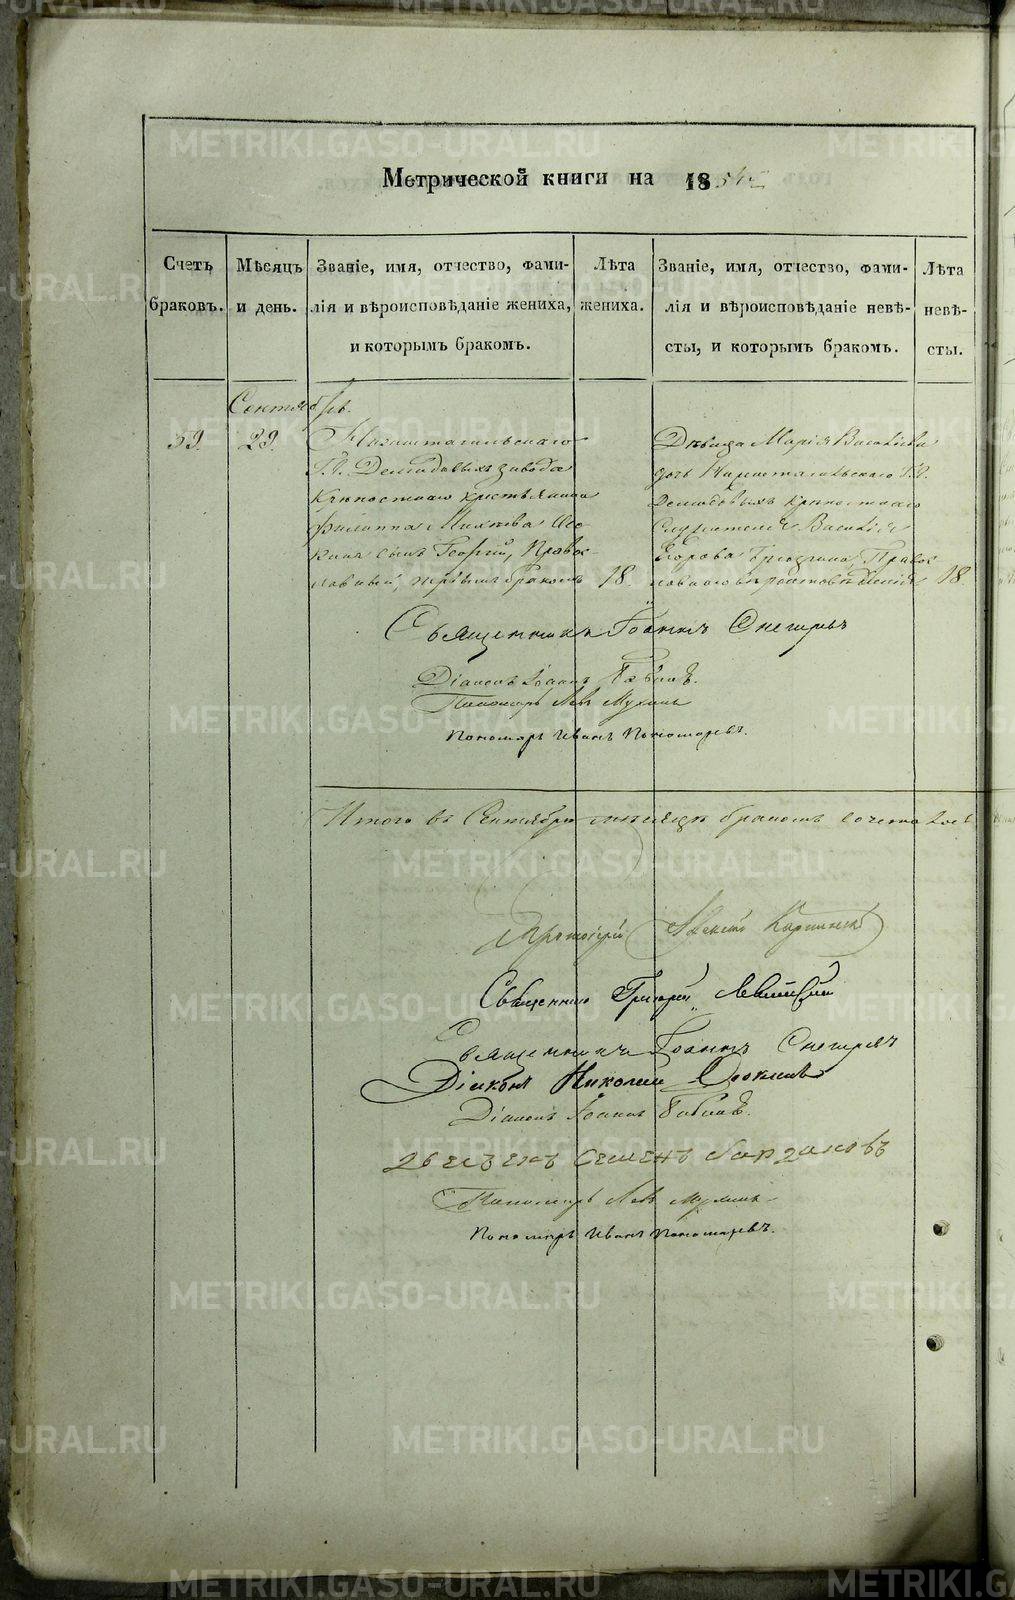 Метрической книги на 1854
Счетъ браковъ.
Мѣсяцъ и день.
Званіе, имя, отчество, фами-
лія и вѣроисповѣданіе жениха,
и которымъ бракомъ.
Лѣта жениха.
Званіе, имя, отчество, фами-
лія и вѣроисповѣданіе невѣ-
сты, и которымъ бракомъ.
Лѣта невѣ-
сты.
Сентябрь.
59.
29.
Нижнетагильскаго
Г.г. Демидовыхъ завода
Крѣпостнаго крестьянина
Филиппа
сынъ Георгій, Правос
лавный, первымъ бракомъ
18.
Дѣвица Марія Васильева
дочь Нижнетагильскаго Г.г.
Демидовыхъ крѣпостнаго
Служителя Василія
Егорова Правос
лавнаго вѣроисповѣданія
18
Священникъ Іоаннъ Снегиревъ
Діаконъ Іоаннъ Бабинъ.
Пономарь Левъ Мухинъ
Пономарь Иванъ Пономаревъ.
Итого въ Сентябрѣ мѣсяцѣ бракомъ сочеталось
Протоіерей Карпинскій
Священникъ Григорій Левитскій
Священникъ Іоаннъ Снегиревъ
Діаконъ Николай
Діаконъ Іоаннъ Бабинъ.
Семенъ
Пономарь Левъ Мухинъ
Пономарь Иванъ Пономаревъ.
METRIKI.GASO-URAL.RU